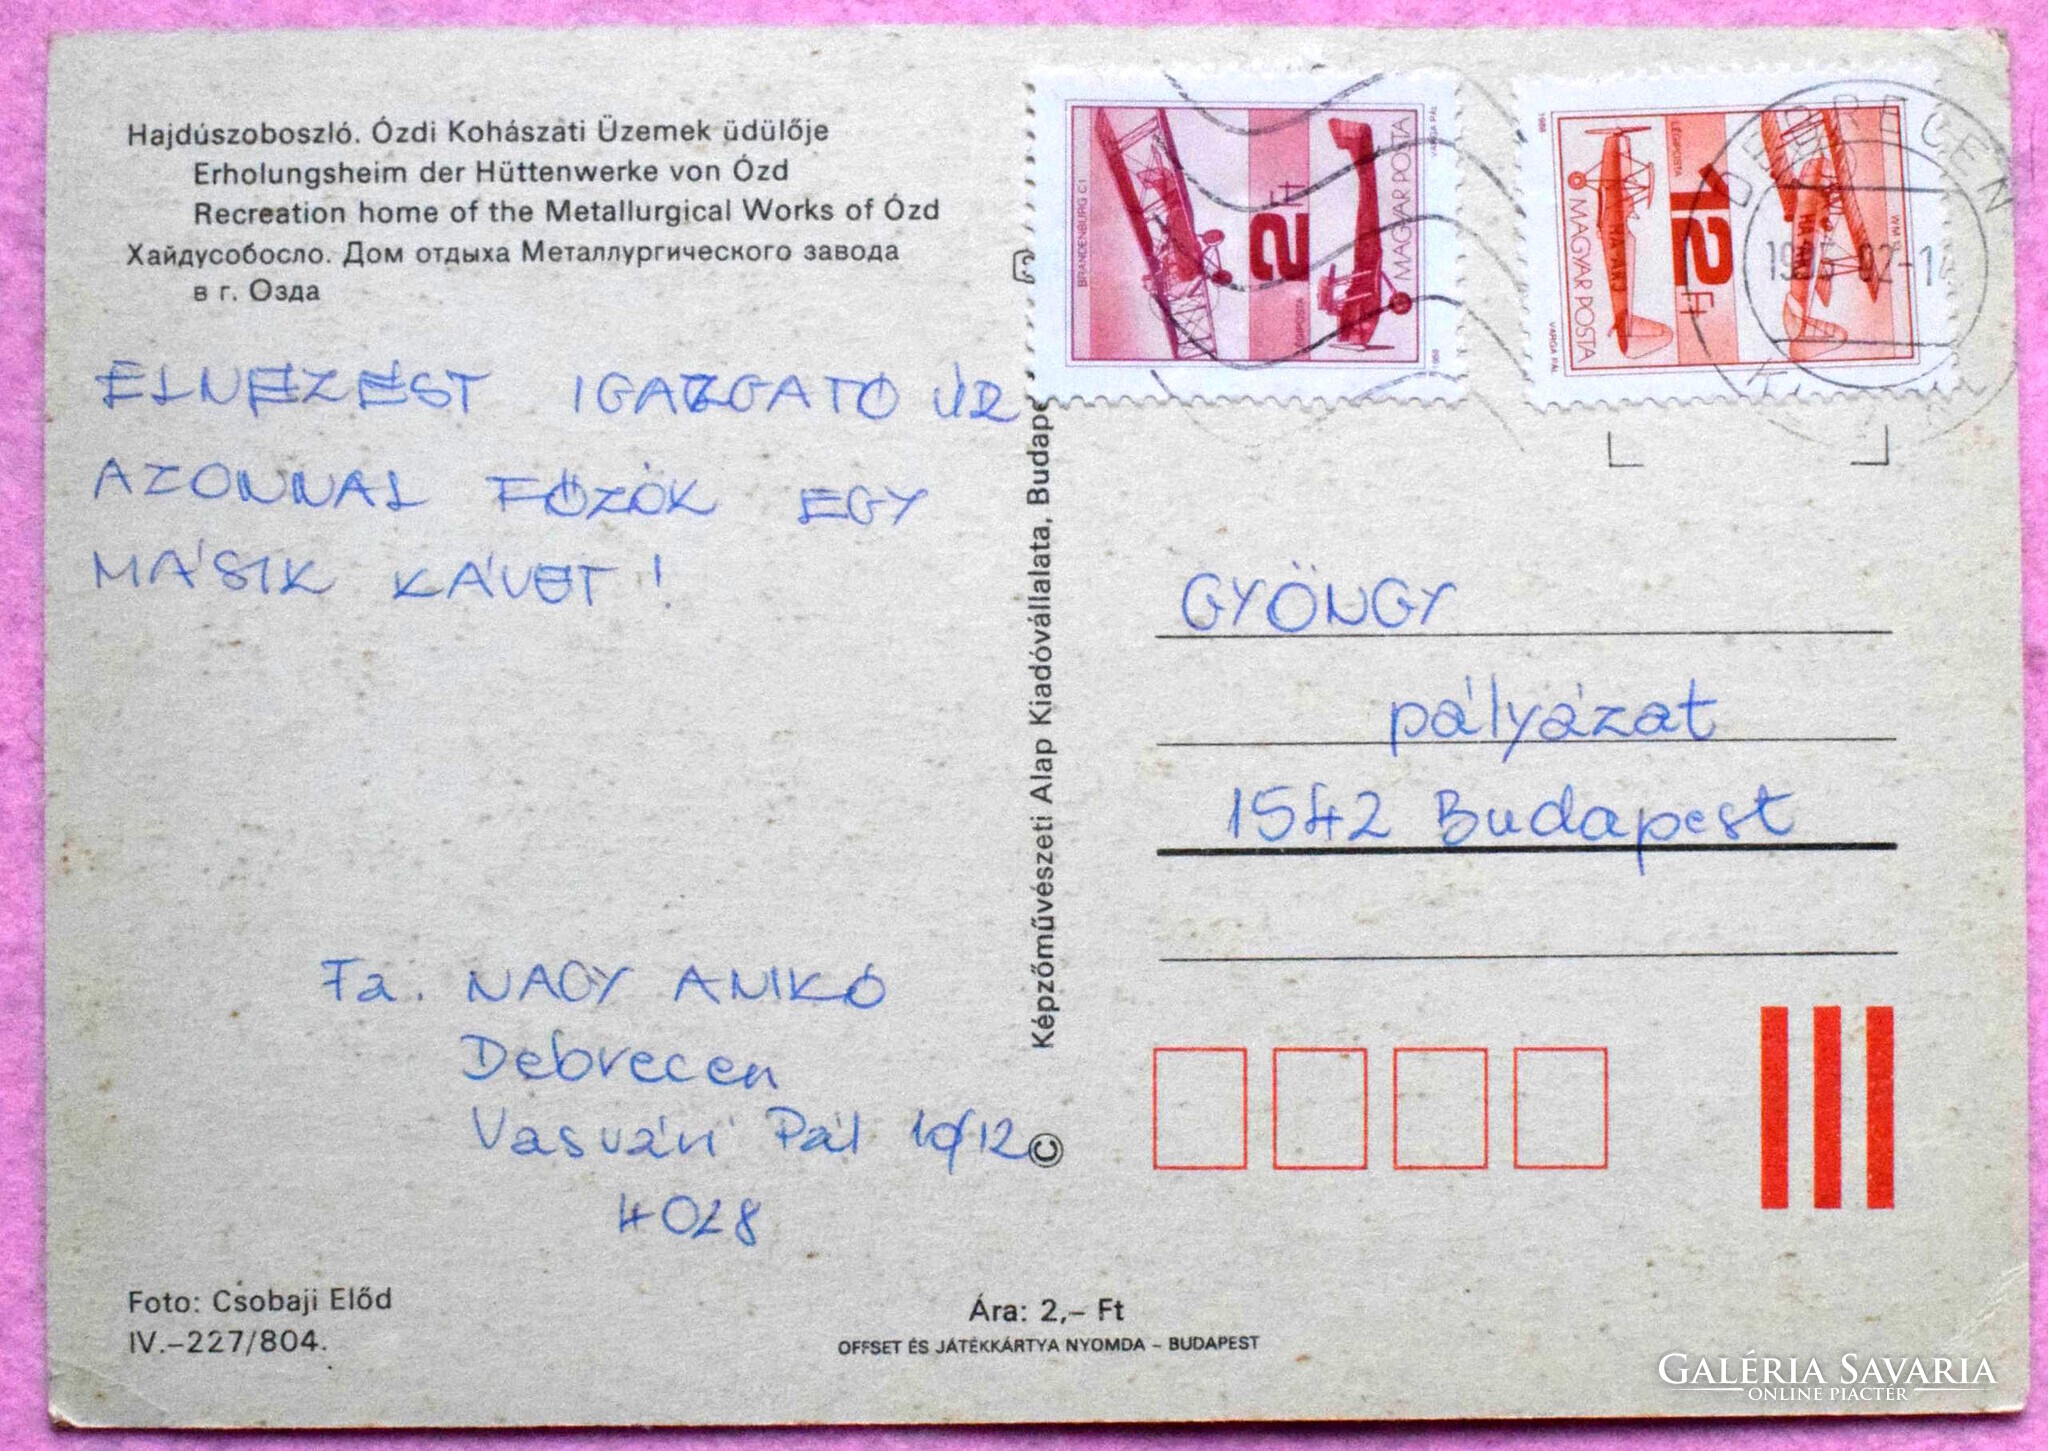 Hajdúszoboszló. Ózdi Kohászati Üzemek üdülője
Erholungsheim der Hüttenwerke von Ózd
Recreation home of the Metallurgical Works of Ózd
Хайдусобосло. Дом отдыха Металлургического завода
в г. Озда
ELNÉZÉST IGAZGATÓ ÚR
AZONNAL FŐZÖK EGY
MÁSIK KÁVÉT!
Fa. NAGY ANIKÓ
Debrecen
Vasvári Pál 10/12
4028
Foto: Csobaji Előd
IV.–227/804.
Ára: 2,– Ft
OFFSET ÉS JÁTÉKKÁRTYA NYOMDA – BUDAPEST
© Képzőművészeti Alap Kiadóvállalata,
BRANDENBURG C1
2 Ft
LÉGIPOSTA
MAGYAR POSTA
VARGA PÁL
1988
1988
MAGYAR POSTA
LÉGIPOSTA
12 Ft
VARGA PÁL
DEBRECEN
GYÖNGY
pályázat
1542 Budapest
GALÉRIA SAVARIA
ONLINE PIACTÉR